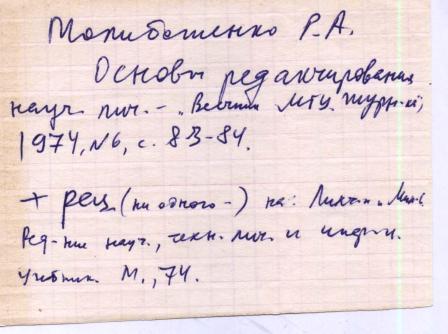 Р.А.
Основы редактирования
науч. лит. – „Вестник МГУ. Журн-ка",
1974, №6, с. 83-84.
+ рец. (ни одного -) на:
Ред-ние науч., техн. лит. и информ.
Учебник. М., 74.